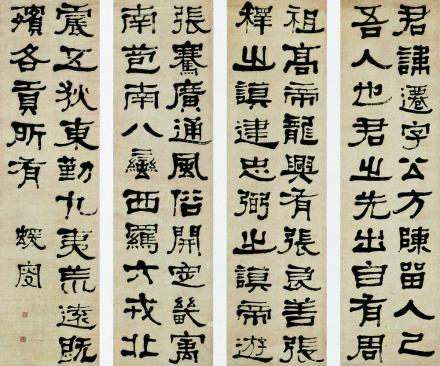 君諱遷字公方陳留人己
吾人也君之先出自有周
祖高帝龍興有張良善張
釋之謨建忠弼之謨帝遊
張騫廣通風俗開定畿寓
南苞南八蠻西羈六戎北
震五狄東勤九夷荒遠既
殯各貢所有 蝯叟